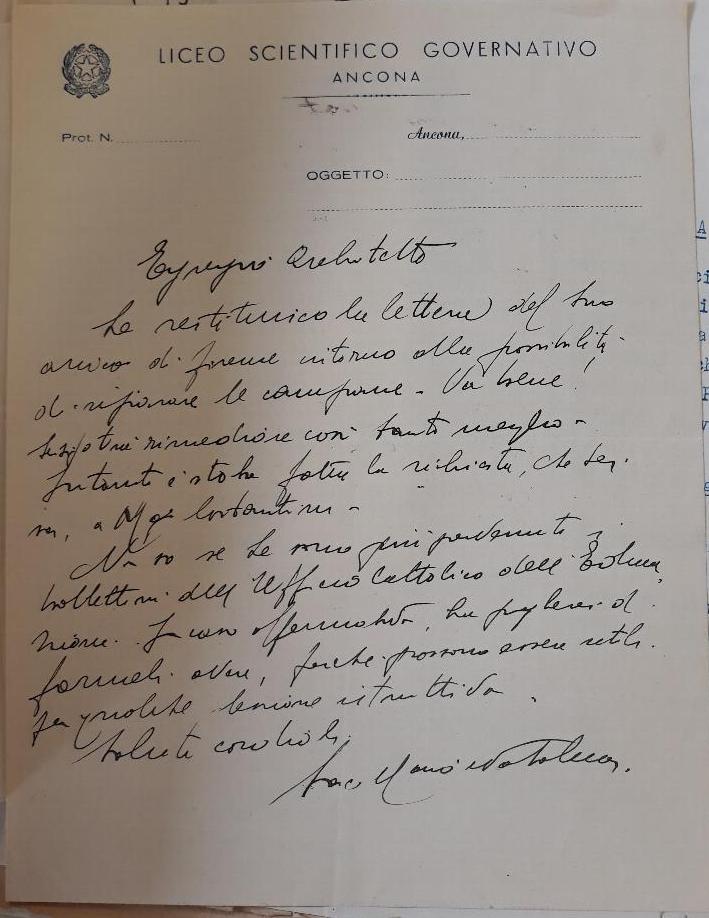 LICEO SCIENTIFICO GOVERNATIVO
ANCONA
Prot. N.
Ancona,
OGGETTO:
Egregio Architetto
Le restituisco la lettera del suo
amico di Firenze intorno alla possibilità
di rifare le campane - Va bene!
rimediare così tanto meglio -
Intanto è stata fatta la richiesta, che ser-
va, a Costantini -
Non so se Le sono pervenuti i
bollettini dell'Ufficio Cattolico dell'Educa-
zione. In caso affermativo, La pregherei di
farmeli avere, perché possono essere utili
per qualche lezione istruttiva.
Saluti cordiali